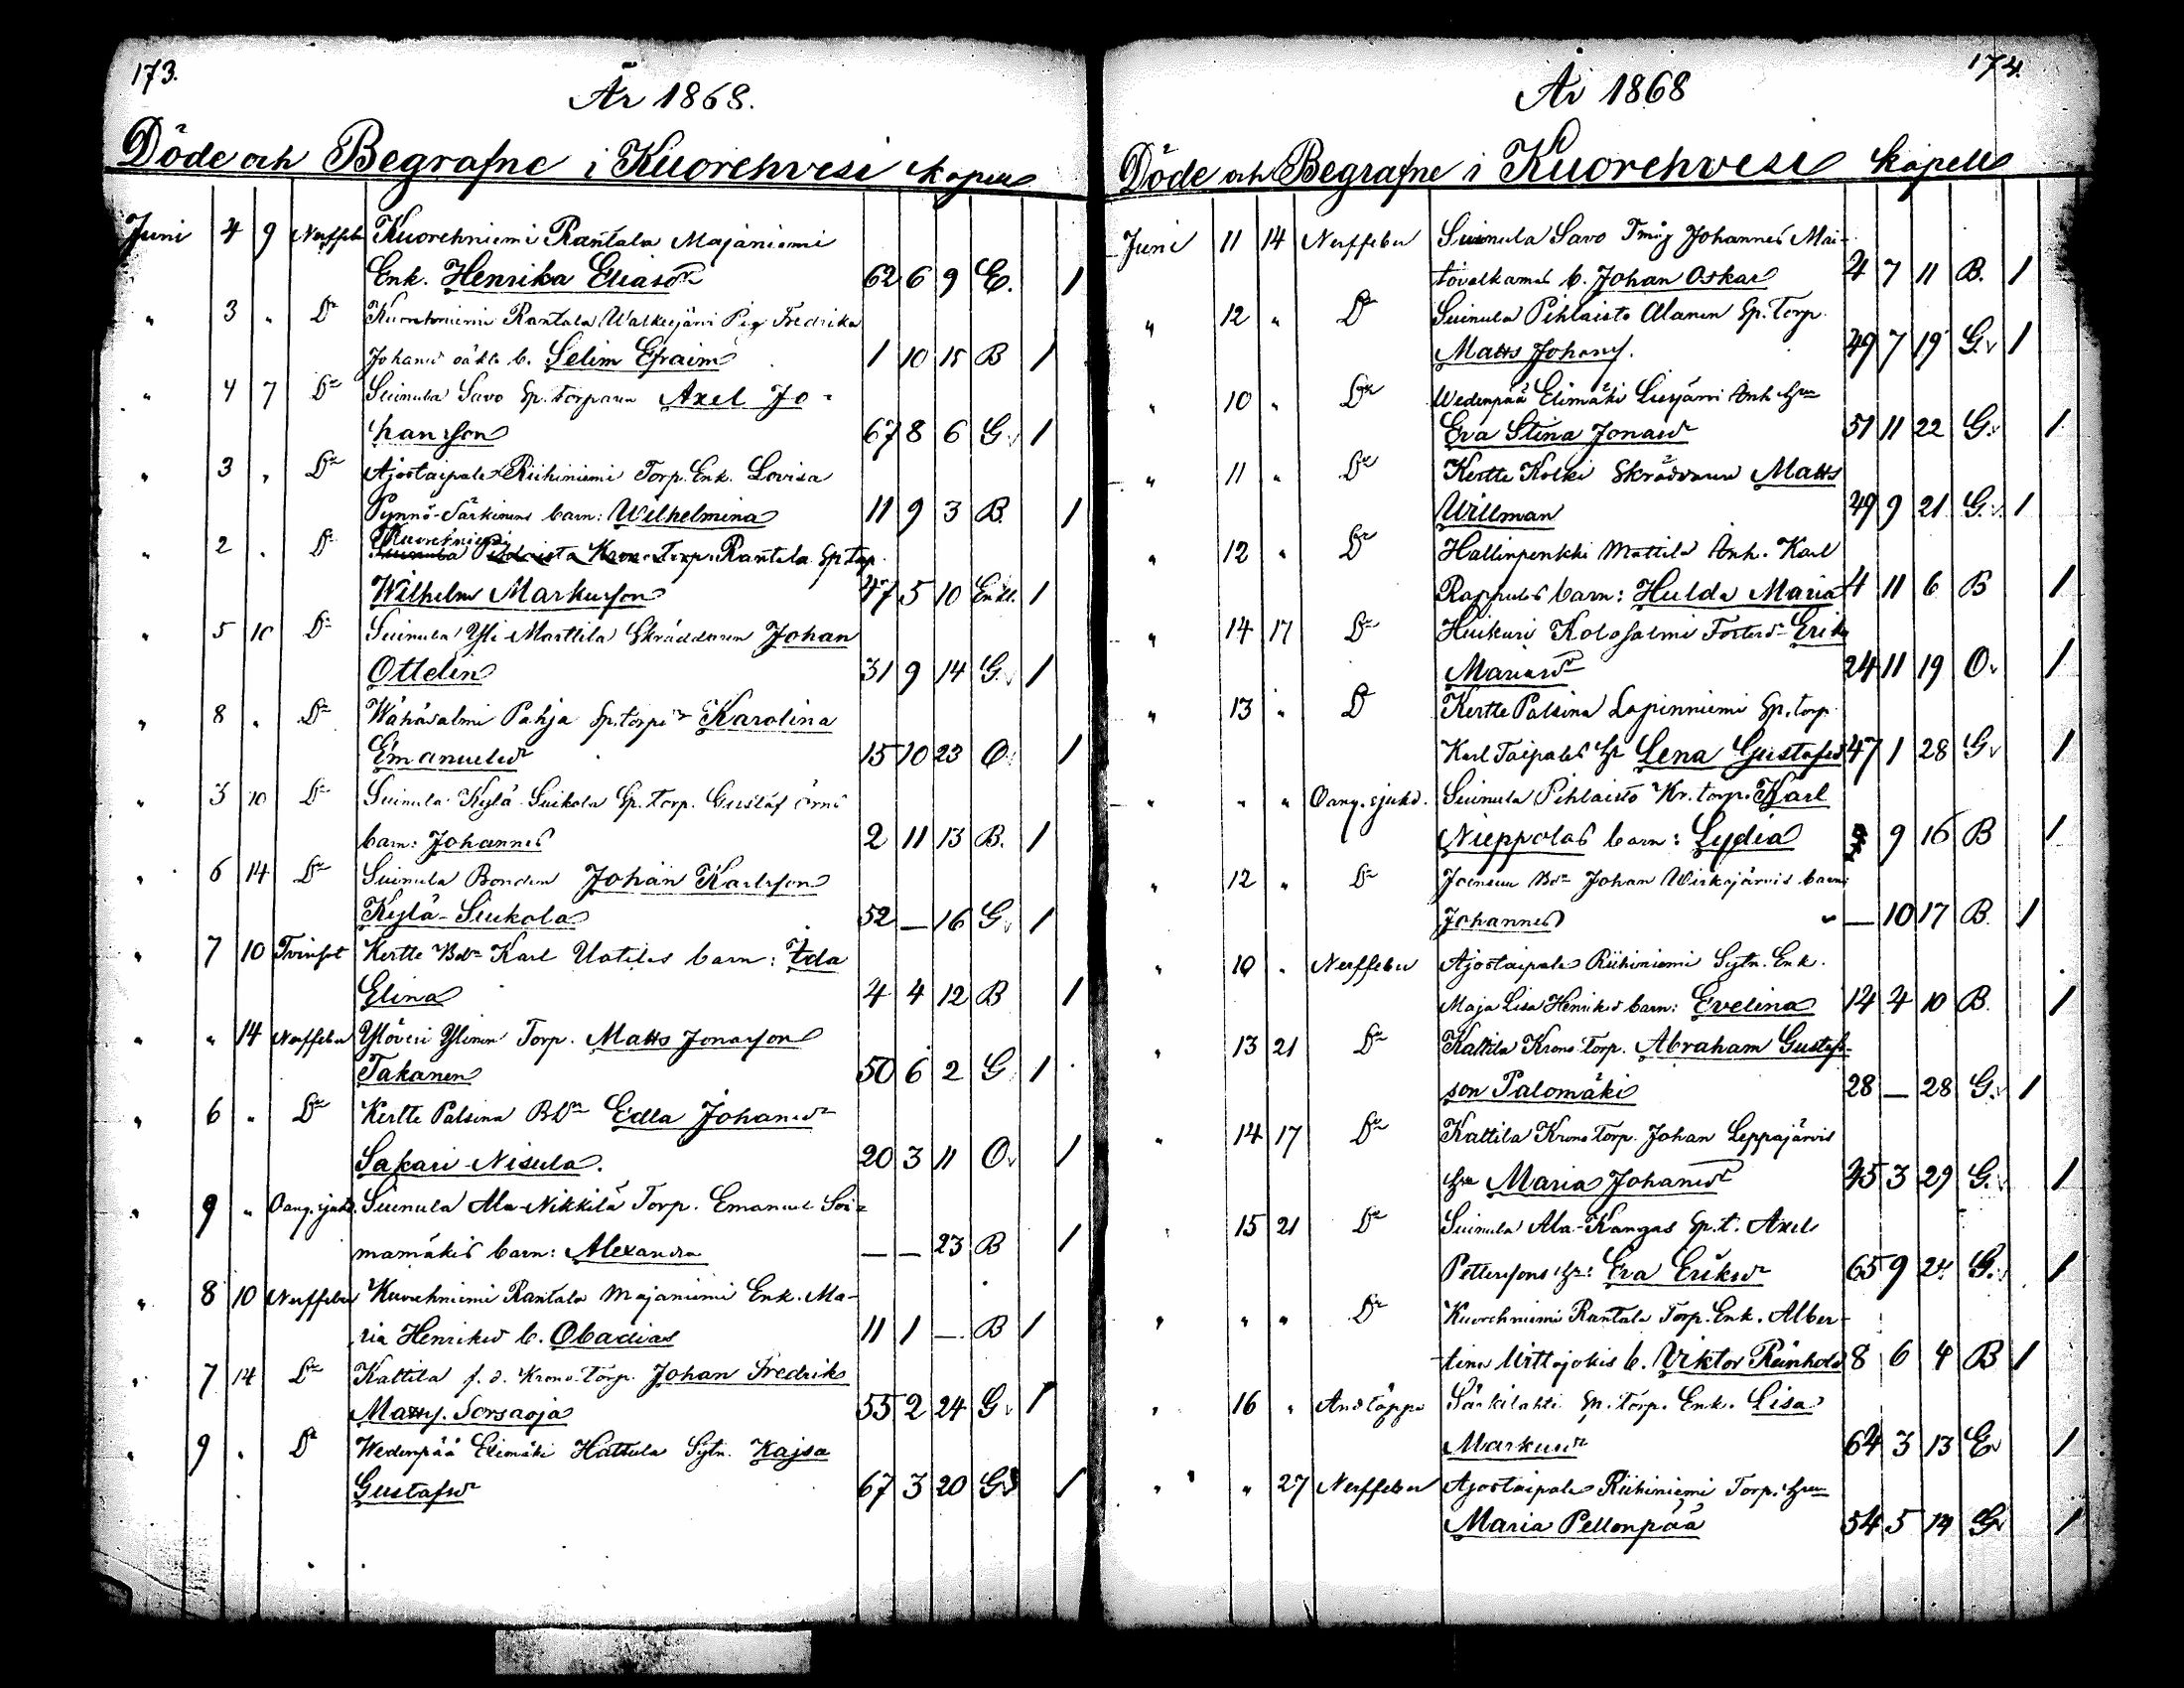 173.
År 1868.
Döde och Begrafne i Kuorehvesi kapell
Juni 4 9 Nerffeb Kuorehniemi Rantala Majaniemi
Enk. Henrika Eliasdr 62 6 9 E. 1
" 3 " Do Kuorehniemi Rantala Walkeejärvi Pig Fredrika
Johansd oäkta b. Selim Efraim 1 10 15 B 1
" 4 7 Do Suinula Savo Sp. torparen Axel Jo-
hansson 67 8 6 G. 1
" 3 " Do Ajostaipale Riihiniemi Torp. Enk. Lovisa
Pynnö-Särkinens barn: Wilhelmina 11 9 3 B. 1
" 2 " Do Kuorehniemi Rantala Sp torp.
Wilhelm Markusson 47 5 10 Enkl. 1
" 5 10 Do Suinula Yli Marttila Skräddaren Johan
Ottelin 31 9 14 G. 1
" 8 " Do Wähäsalmi Pahja Sp. torpe dr Karolina
Emanuelsdr 15 10 23 O. 1
" 3 10 Do Suinula Kylä-Siukola Sp. torp. Gustaf
barn: Johannes 2 11 13 B. 1
" 6 14 Do Suinula Bonden Johan Karlsson
Kylä-Siukola 52 — 16 G. 1
" 7 10 Tvinsot Kertte Bdn Karl Uotilas barn: Ida
Elina 4 4 12 B 1
" " 14 Nerffeber Ylöveri Ylinen Torp. Matts Jonasson
Takanen 50 6 2 G 1
" 6 " Do Kertte Palsina Bdr Edla Johansdr
Sakari-Nisula. 20 3 11 O. 1
" 9 " Oang. sjukd. Suinula Ala-Nikkilä Torp. Emanuel Soi-
mamäkis barn: Alexandra — — 23 B 1
" 8 10 Nerffeber Kuorehniemi Rantala Majaniemi Enk. Ma-
ria Henriksd b. Obadias 11 1 — B 1
" 7 14 Do Kattila f. d. Krono-Torp. Johan Fredrik
Mattss. Sorsaoja 55 2 24 G. 1
" 9 " Do Wedenpää Elimäki Hattula Sytn. Kajsa
Gustafsdr 67 3 20 G. 1
174.
År 1868
Döde och Begrafne i Kuorehvesi kapell
Juni 11 14 Nerffeber Suinula Savo Tmg Johannes Mai-
tovalkamas b. Johan Oskar 4 7 11 B. 1
" 12 " Do Suinula Pihlaisto Alanen Sp. Torp.
Matts Johans. 49 7 19 G. 1
" 10 " Do Wedenpää Elimäki Liesjärvi Anh. Hu
Eva Stina Jonasdr 51 11 22 G. 1
" 11 " Do Kertte Kolki Skräddaren Matts
Willman 49 9 21 G. 1
" 12 " Do Hallinpenkki Mattila Anh. Karl
Rappulas barn: Hulda Maria 4 11 6 B 1
" 14 17 Do Huikuri Kolosalmi Fosterd. Erika
Mariasdr 24 11 19 O. 1
" 13 " Do Kertte Palsina Lapinniemi Sp. torp.
Karl Taipales Hu Lena Gustafsd 47 1 28 G. 1
" " " Oang. sjukd. Suinula Pihlaisto Kr. torp. Karl
Nieppolas barn: Lydia 9 16 B 1
" 12 " Do Joensuu Bdn Johan Wirkajärvis barn:
Johannes — 10 17 B. 1
" 10 " Nerffeber Ajostaipale Riihiniemi Sytn. Enk.
Maja Lisa Henriksd barn: Evelina 14 4 10 B. 1
" 13 21 Do Kattila Krono Torp. Abraham Gustafs-
son Palomäki 28 — 28 G. 1
" 14 17 Do Kattila Krono Torp. Johan Leppäjärvis
Hu Maria Johansdr 45 3 29 G. 1
" 15 21 Do Suinula Ala-Kangas Sp. t. Axel
Pettersons Hu: Eva Eriksdr 65 9 24 G. 1
" " " Do Kuorehniemi Rantala Torp. Enk. Alber-
tina Wittajokis b. Viktor Reinhold 8 6 4 B 1
" 16 " Andtäppa Särkilahti Sp. Torp. Enk. Lisa
Markusdr 64 3 13 E. 1
" " 27 Nerffeber Ajostaipale Riihiniemi Torp. Hu
Maria Pellonpää 54 5 14 G. 1